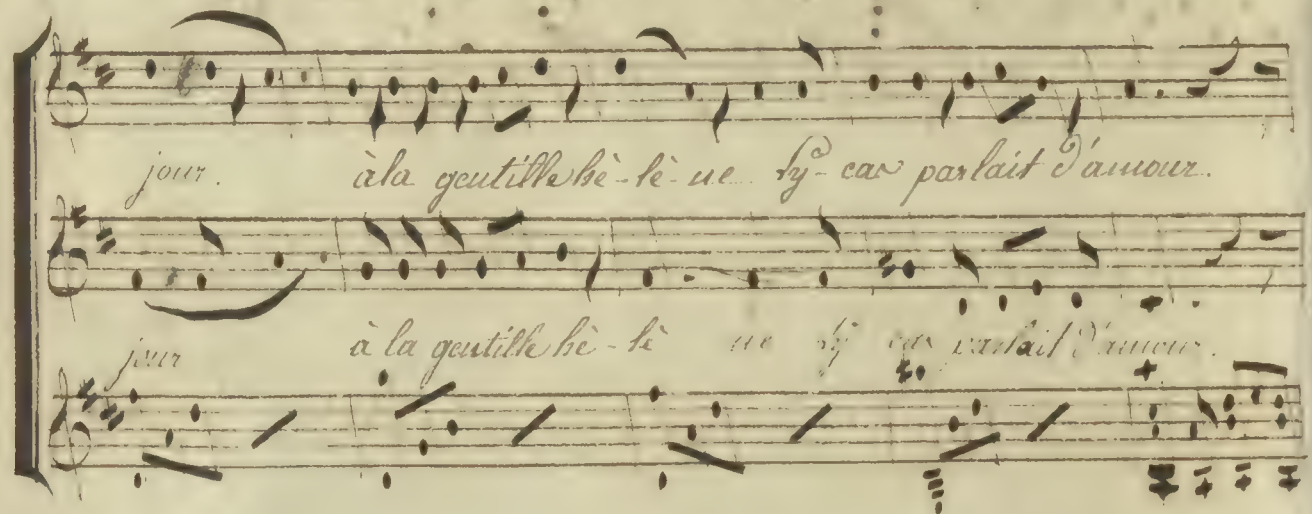 jour. à la gentille hè-lè-ne ly-cas parlait d'amour.
jour à la gentille hè-lè ne ly cas parlait d'amour.